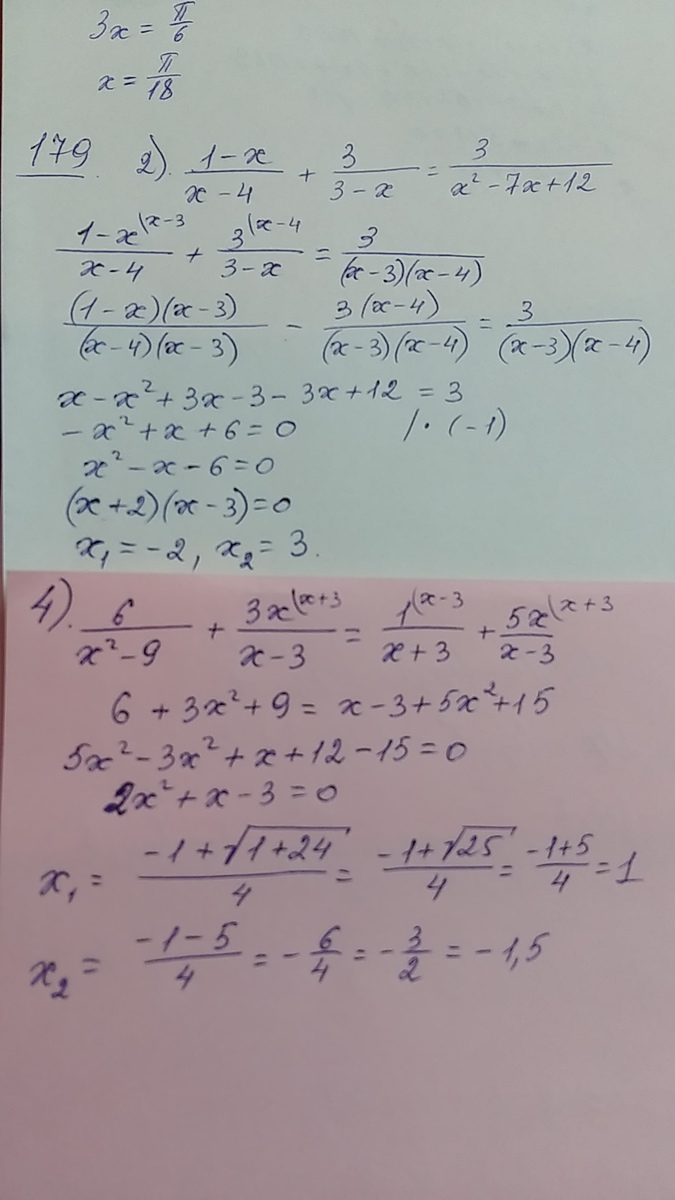 3x = π/6
x = π/18
179. 2). (1-x)/(x-4) + 3/(3-x) = 3/(x²-7x+12)
1-x^(x-3/(x-4) + 3^(x-4/(3-x) = 3/((x-3)(x-4))
((1-x)(x-3))/((x-4)(x-3)) - (3(x-4))/((x-3)(x-4)) = 3/((x-3)(x-4))
x-x²+3x-3-3x+12 = 3
-x²+x+6=0 /·(-1)
x²-x-6=0
(x+2)(x-3)=0
x₁=-2, x₂=3.
4). 6/(x²-9) + 3x^(x+3/(x-3) = 1^(x-3/(x+3) + 5x^(x+3/(x-3)
6+3x²+9= x-3+5x²+15
5x²-3x²+x+12-15=0
2x²+x-3=0
x₁= (-1+√(1+24))/4 = (-1+√25)/4 = (-1+5)/4 = 1
x₂ = (-1-5)/4 = -6/4 = -3/2 = -1,5